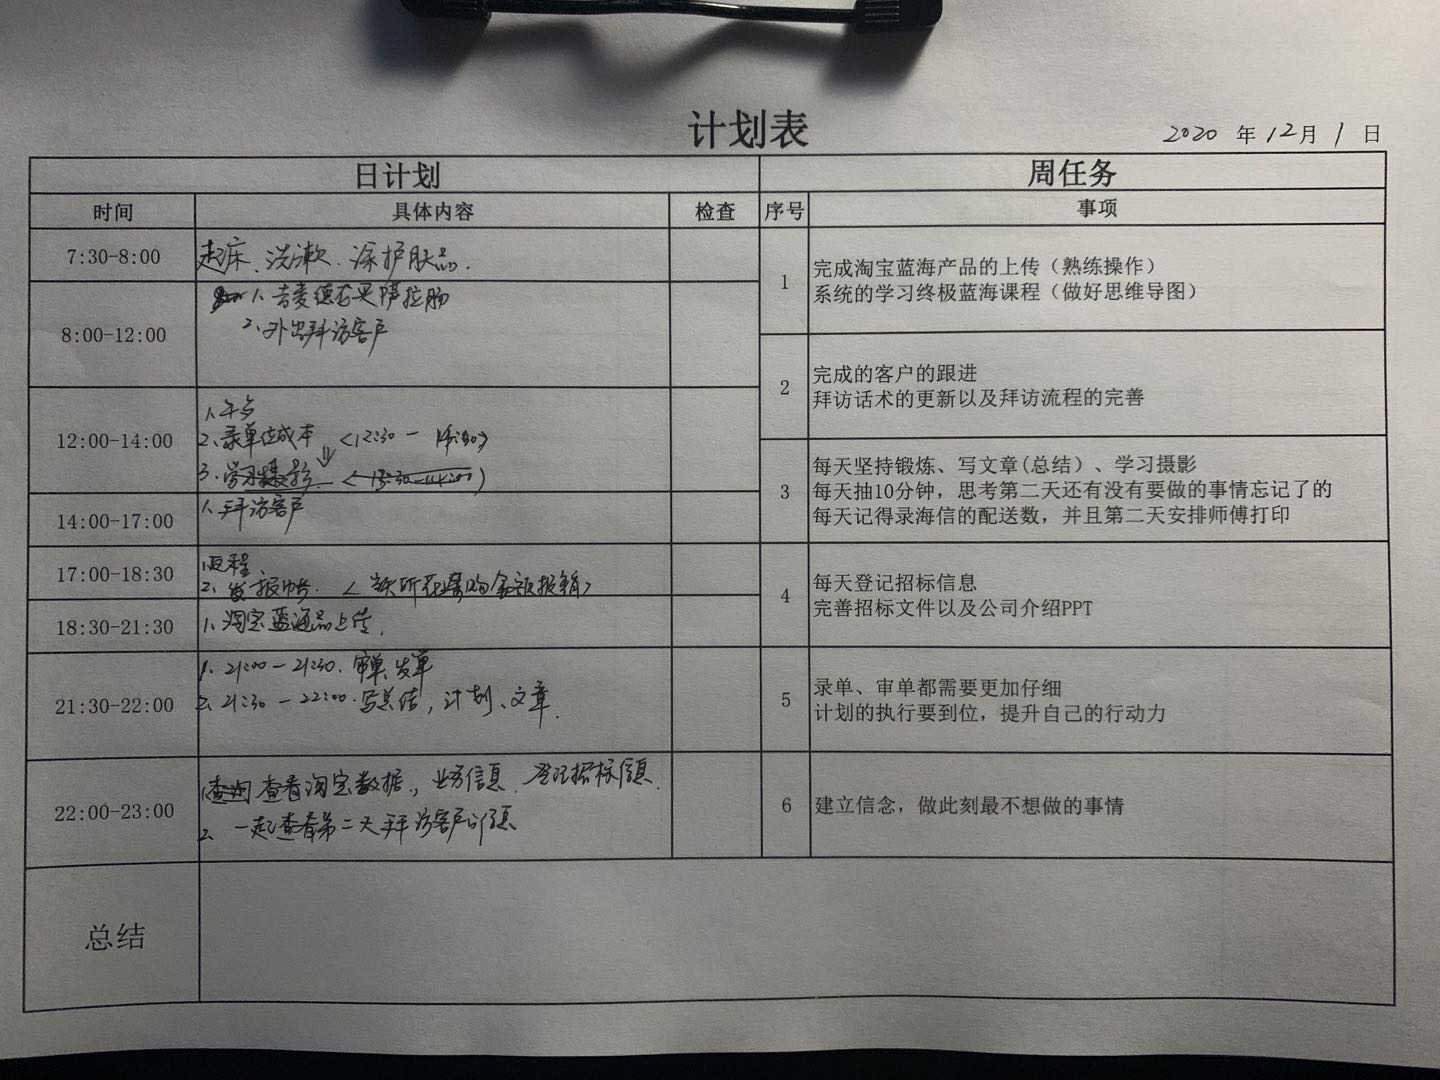 计划表
2020 年 12 月 1 日
日计划
周任务
时间
具体内容
检查
序号
事项
7:30-8:00
起床、洗漱、涂护肤品.
8:00-12:00
1、去
2、外出拜访客户
12:00-14:00
1、午
2、录单位成本 <12:30 -
3、学习
14:00-17:00
1、拜访客户
17:00-18:30
1、返程
2、发报
18:30-21:30
1、淘宝蓝海品上传,
21:30-22:00
1、21:00-21:30、发单
2、21:30-22:00、写总结,计划、文章.
22:00-23:00
查看淘宝数据、业务信息、登记招标信息.
2、一起查看第二天拜访客户的信息
总结
1
完成淘宝蓝海产品的上传（熟练操作）
系统的学习终极蓝海课程（做好思维导图）
2
完成的客户的跟进
拜访话术的更新以及拜访流程的完善
3
每天坚持锻炼、写文章(总结)、学习摄影
每天抽10分钟，思考第二天还有没有要做的事情忘记了的
每天记得录海信的配送数，并且第二天安排师傅打印
4
每天登记招标信息
完善招标文件以及公司介绍PPT
5
录单、审单都需要更加仔细
计划的执行要到位，提升自己的行动力
6
建立信念，做此刻最不想做的事情